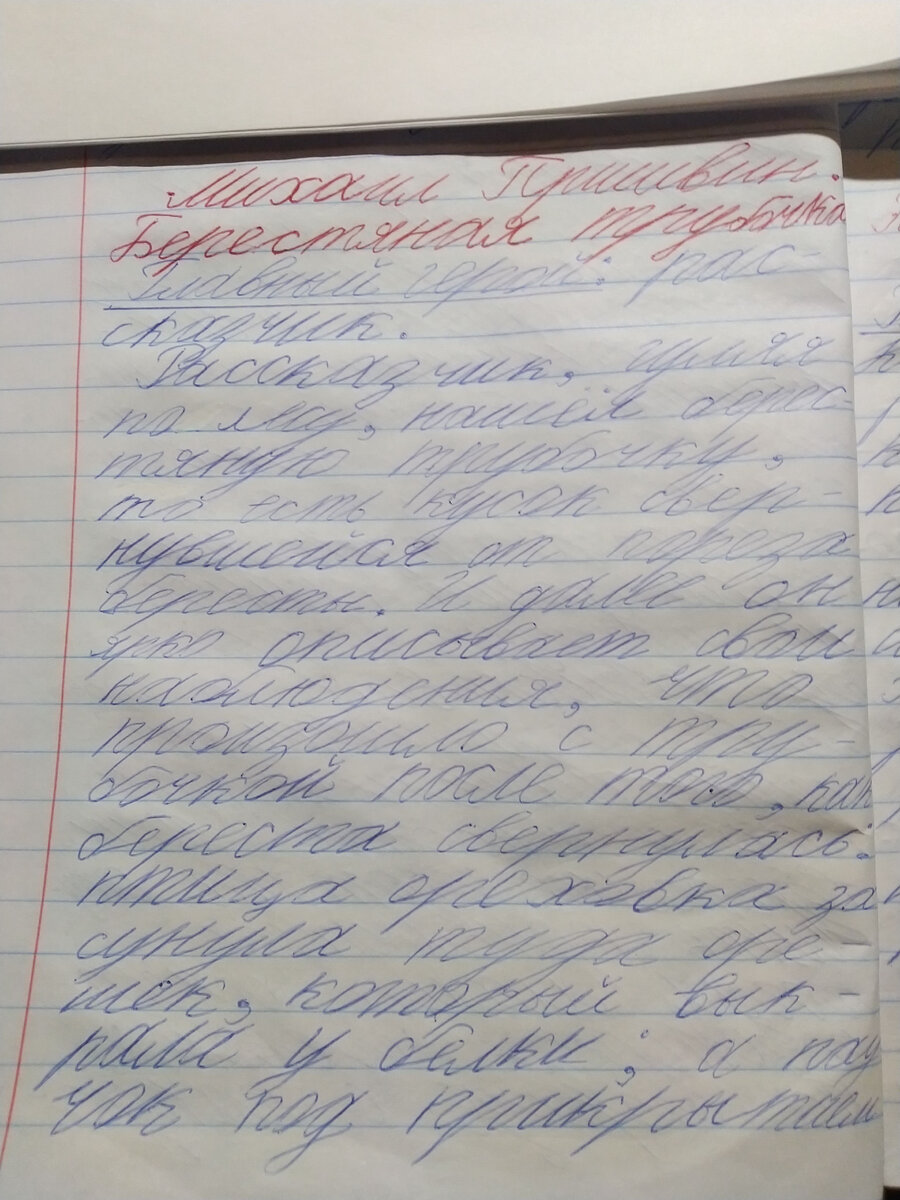 Михаил Пришвин.
Берестяная трубочка
Главный герой: рас-
сказчик.
Рассказчик, гуляя
по лесу, нашёл берес-
тяную трубочку,
то есть кусок свер-
нувшейся от пореза
бересты. И далее он
ярко описывает свои
наблюдения, что
произошло с тру-
бочкой после того, как
береста свернулась:
птица ореховка за
сунула туда оре-
шек, который вык-
рала у белки; а пау
чок под прикрытием